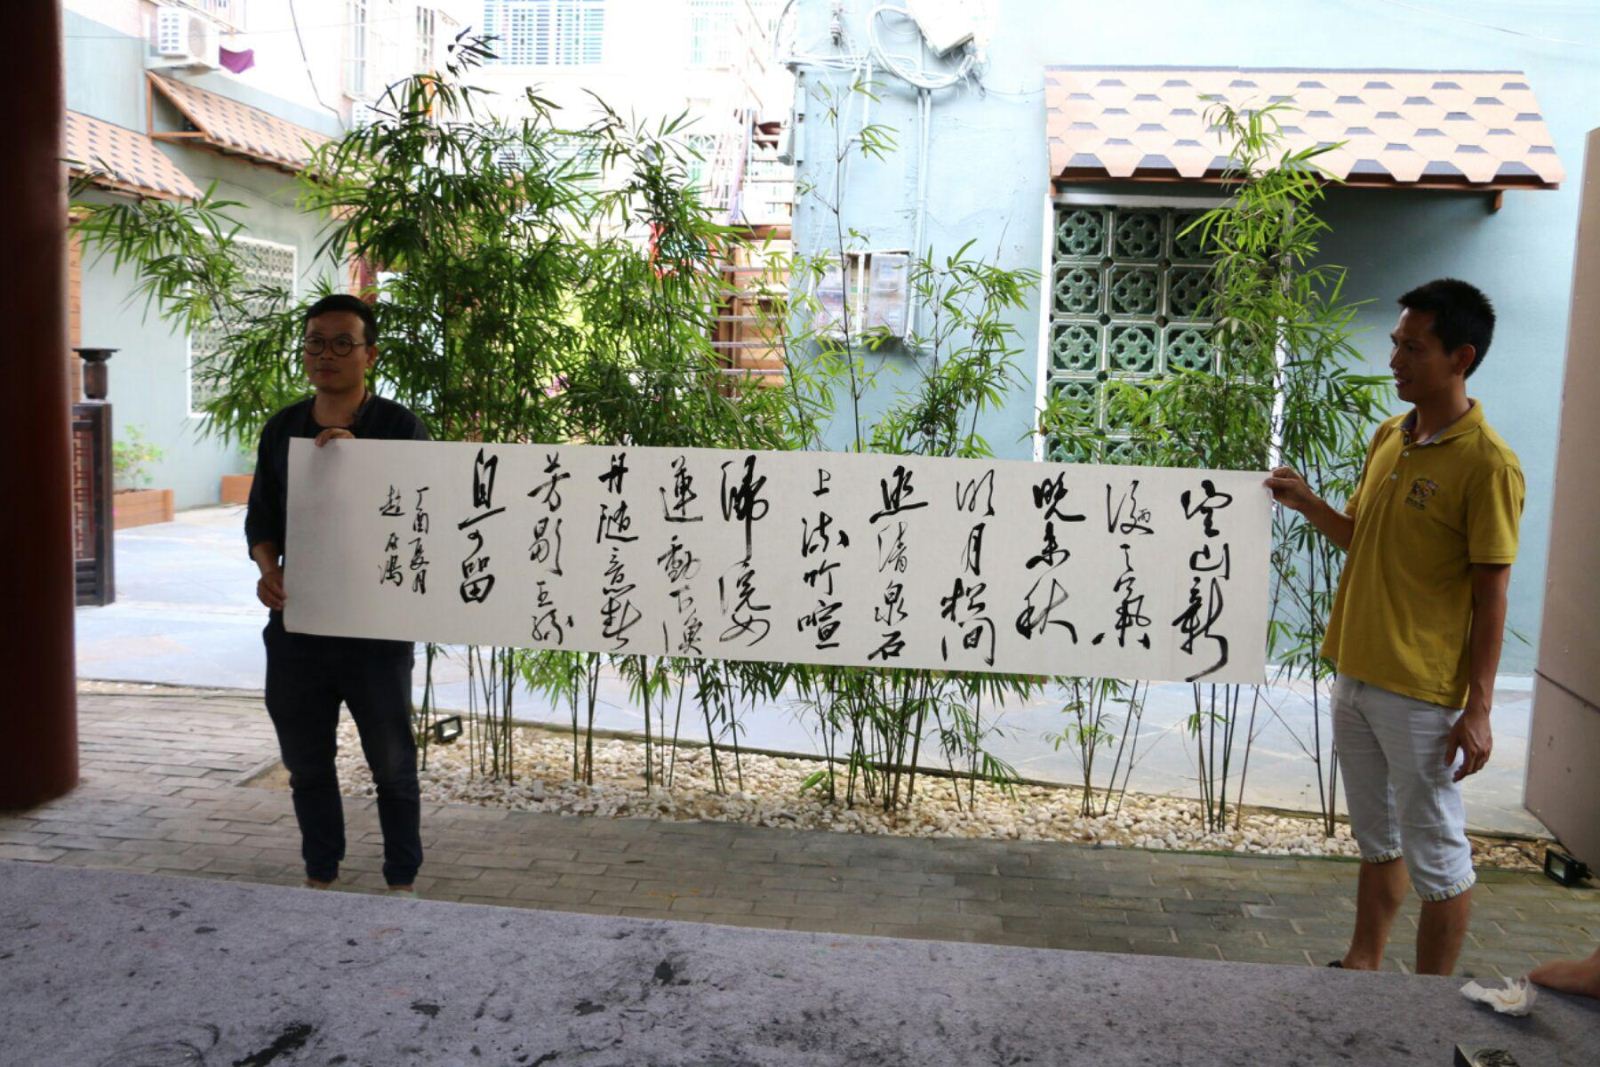 空山新
雨後天氣
晚来秋
明月松间
照清泉石
上流竹喧
歸浣女
蓮動下漁
舟随意春
芳歇王孫
自可留
丁酉夏月
赵